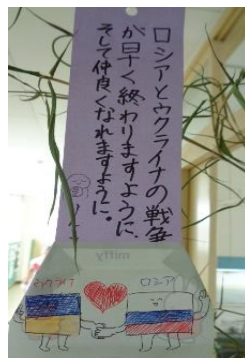 ロシアとウクライナの戦争
が早く終わりますように、
そして仲良くなれますように。
miffy
ウクライナ
ロシア